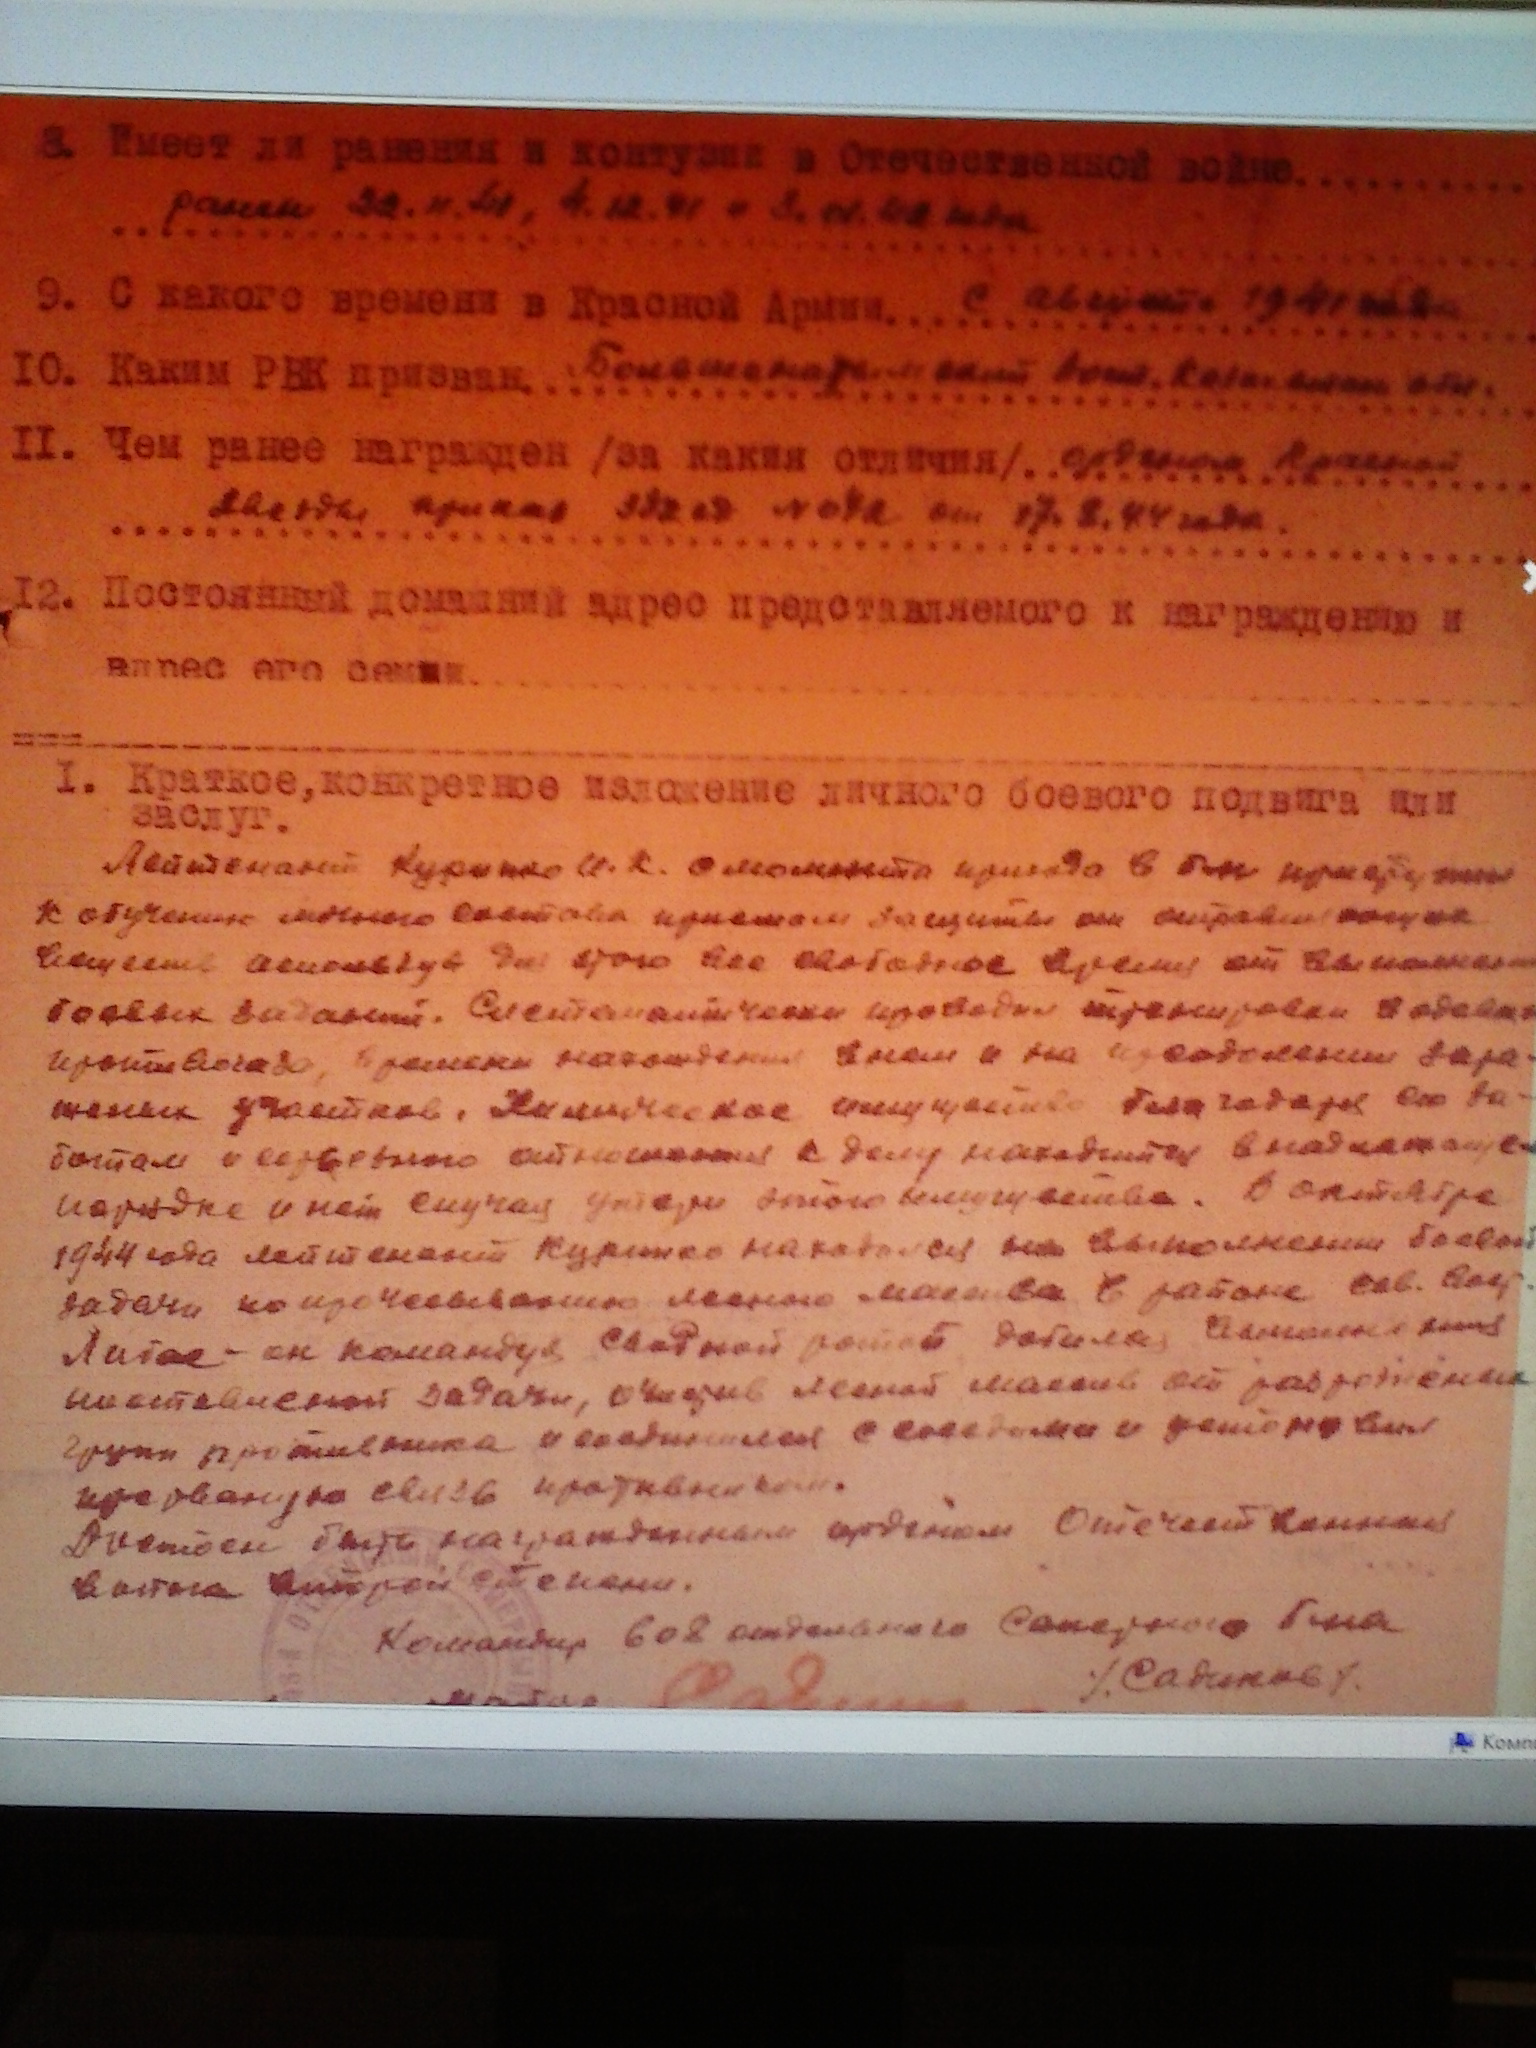 8. Имеет ли ранения и контузии в Отечественной войне
ранен 22.11.41, 4.12.41 и 3. года
9. С какого времени в Красной Армии с августа 1941 года
10. Каким РВК призван
II. Чем ранее награжден /за какия отличия/ орденом Красной
Звезды приказ от 17.8.44 года.
12. Постоянный домашний адрес представляемого к награждению и
адрес его семьи
I. Краткое, конкретное изложение личного боевого подвига или
заслуг.
Лейтенант Курипко И.К. с момента прихода в б-н приступил
к обучению личного состава приемам защиты от отравляющих
веществ используя для этого все свободное время от выполнения
боевых заданий. Систематически проводил тренировки в
противогаза, времени нахождения в нем и на преодолении зара-
женых участков. Химическое имущество благодаря его за-
ботам и серьезного отношения к делу находится в надлежащем
порядке и нет случая утери этого имущества. В октябре
1944 года лейтенант Курипко находился на выполнении боевой
задачи по прочесыванию лесного массива в районе сев. вост.
он командуя сводной ротой добился выполнения
поставленой задачи, очистив лесной массив от разрозненых
групп противника и соединился с соседями и установил
прерваную связь противником.
Достоен быть награжденным орденом Отечественная
Война второй степени.
Командир 608 отдельного Саперного б-на
/Садиков/.
Комп